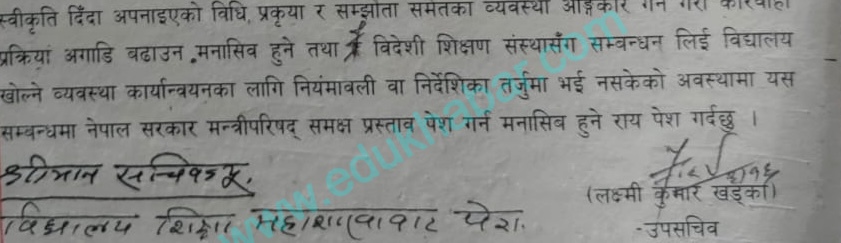 स्वीकृति दिँदा अपनाइएको विधि, प्रकृया र सम्झौता समेतका व्यवस्था अङ्किकार गर्न गरी कारवाही
प्रक्रिया अगाडि बढाउन मनासिव हुने तथा विदेशी शिक्षण संस्थासँग सम्बन्धन लिई विद्यालय
खोल्ने व्यवस्था कार्यान्वयनका लागि नियमावली वा निर्देशिका तर्जुमा भई नसकेको अवस्थामा यस
सम्बन्धमा नेपाल सरकार मन्त्रीपरिषद् समक्ष प्रस्ताव पेश गर्न मनासिव हुने राय पेश गर्दछु ।
श्रीमान सचिवज्यू,
(लक्ष्मी कुमारी खड्का)
विद्यालय शिक्षा महाशाखाबाट पेश.
-उपसचिव
www.edukhabar.com